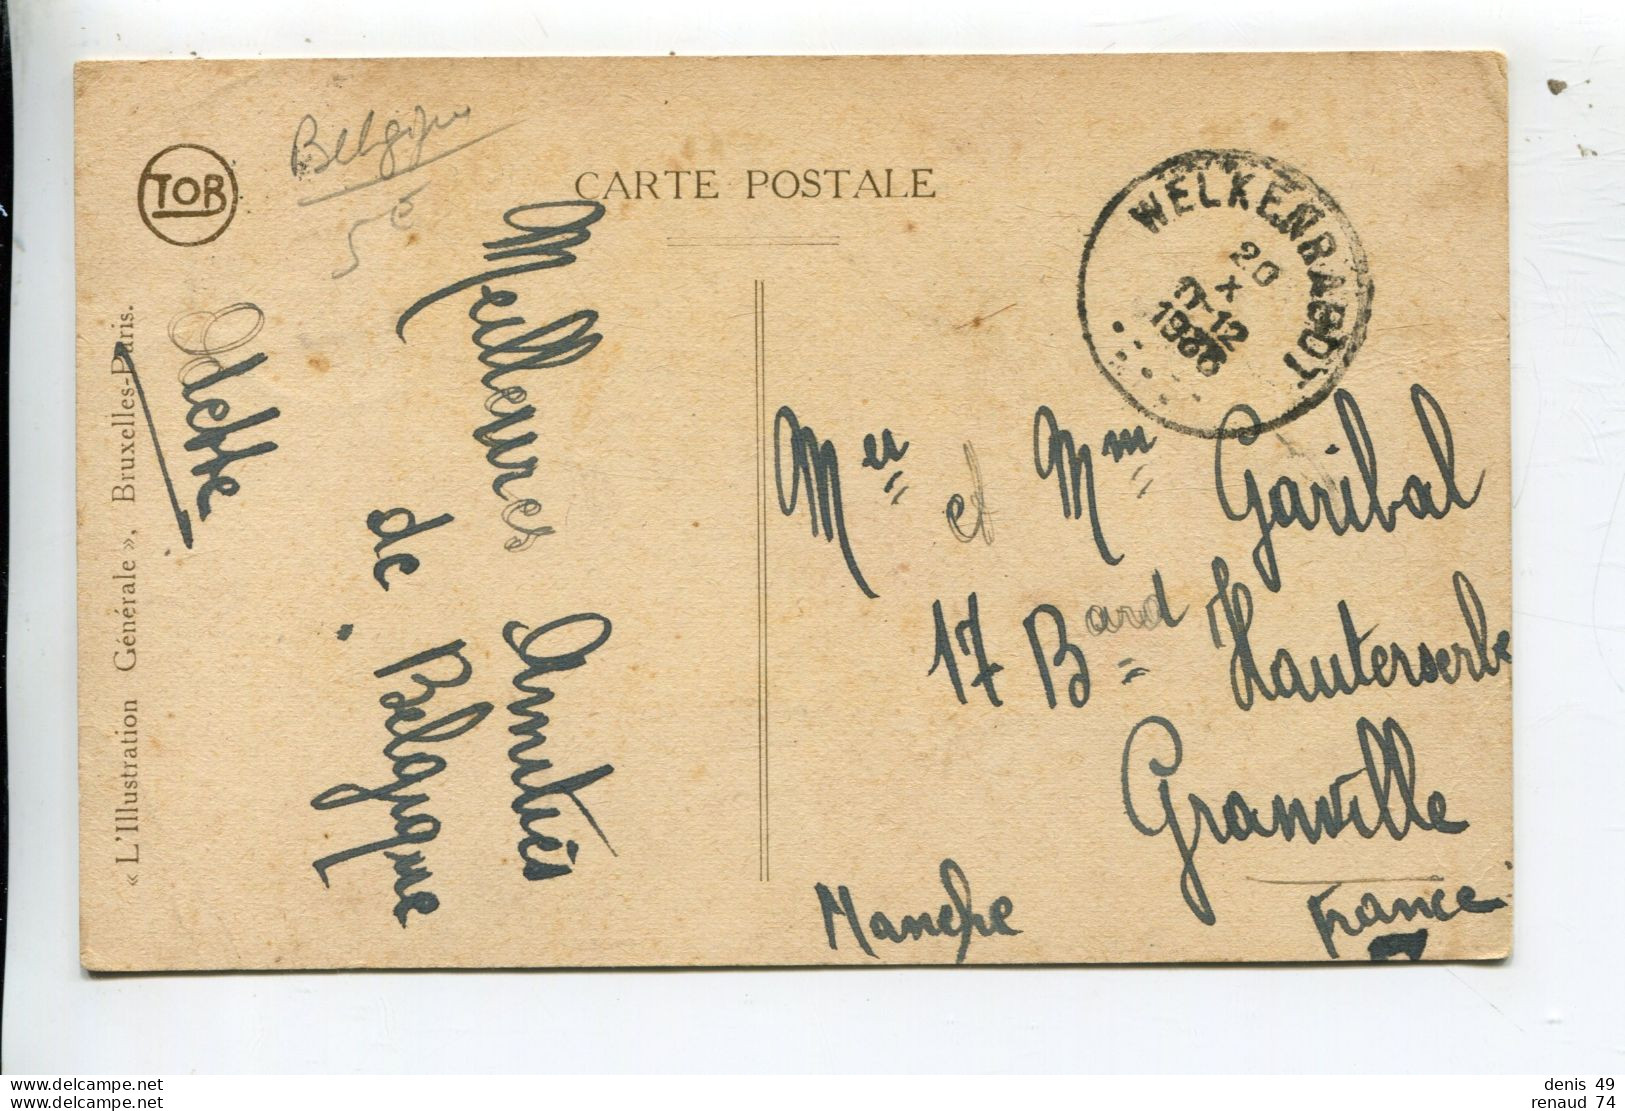 TOR
Belgique
5€
CARTE POSTALE
WELKENRAEDT
20
X
11-12
Meilleures Amitiés
de Belgique
Odette
« L'Illustration Générale », Bruxelles-Paris.
Mer et Mm Garibal
17 Bard Hauterserbe
Granville
Manche France
www.delcampe.net
www.delcampe.com
denis 49
renaud 74